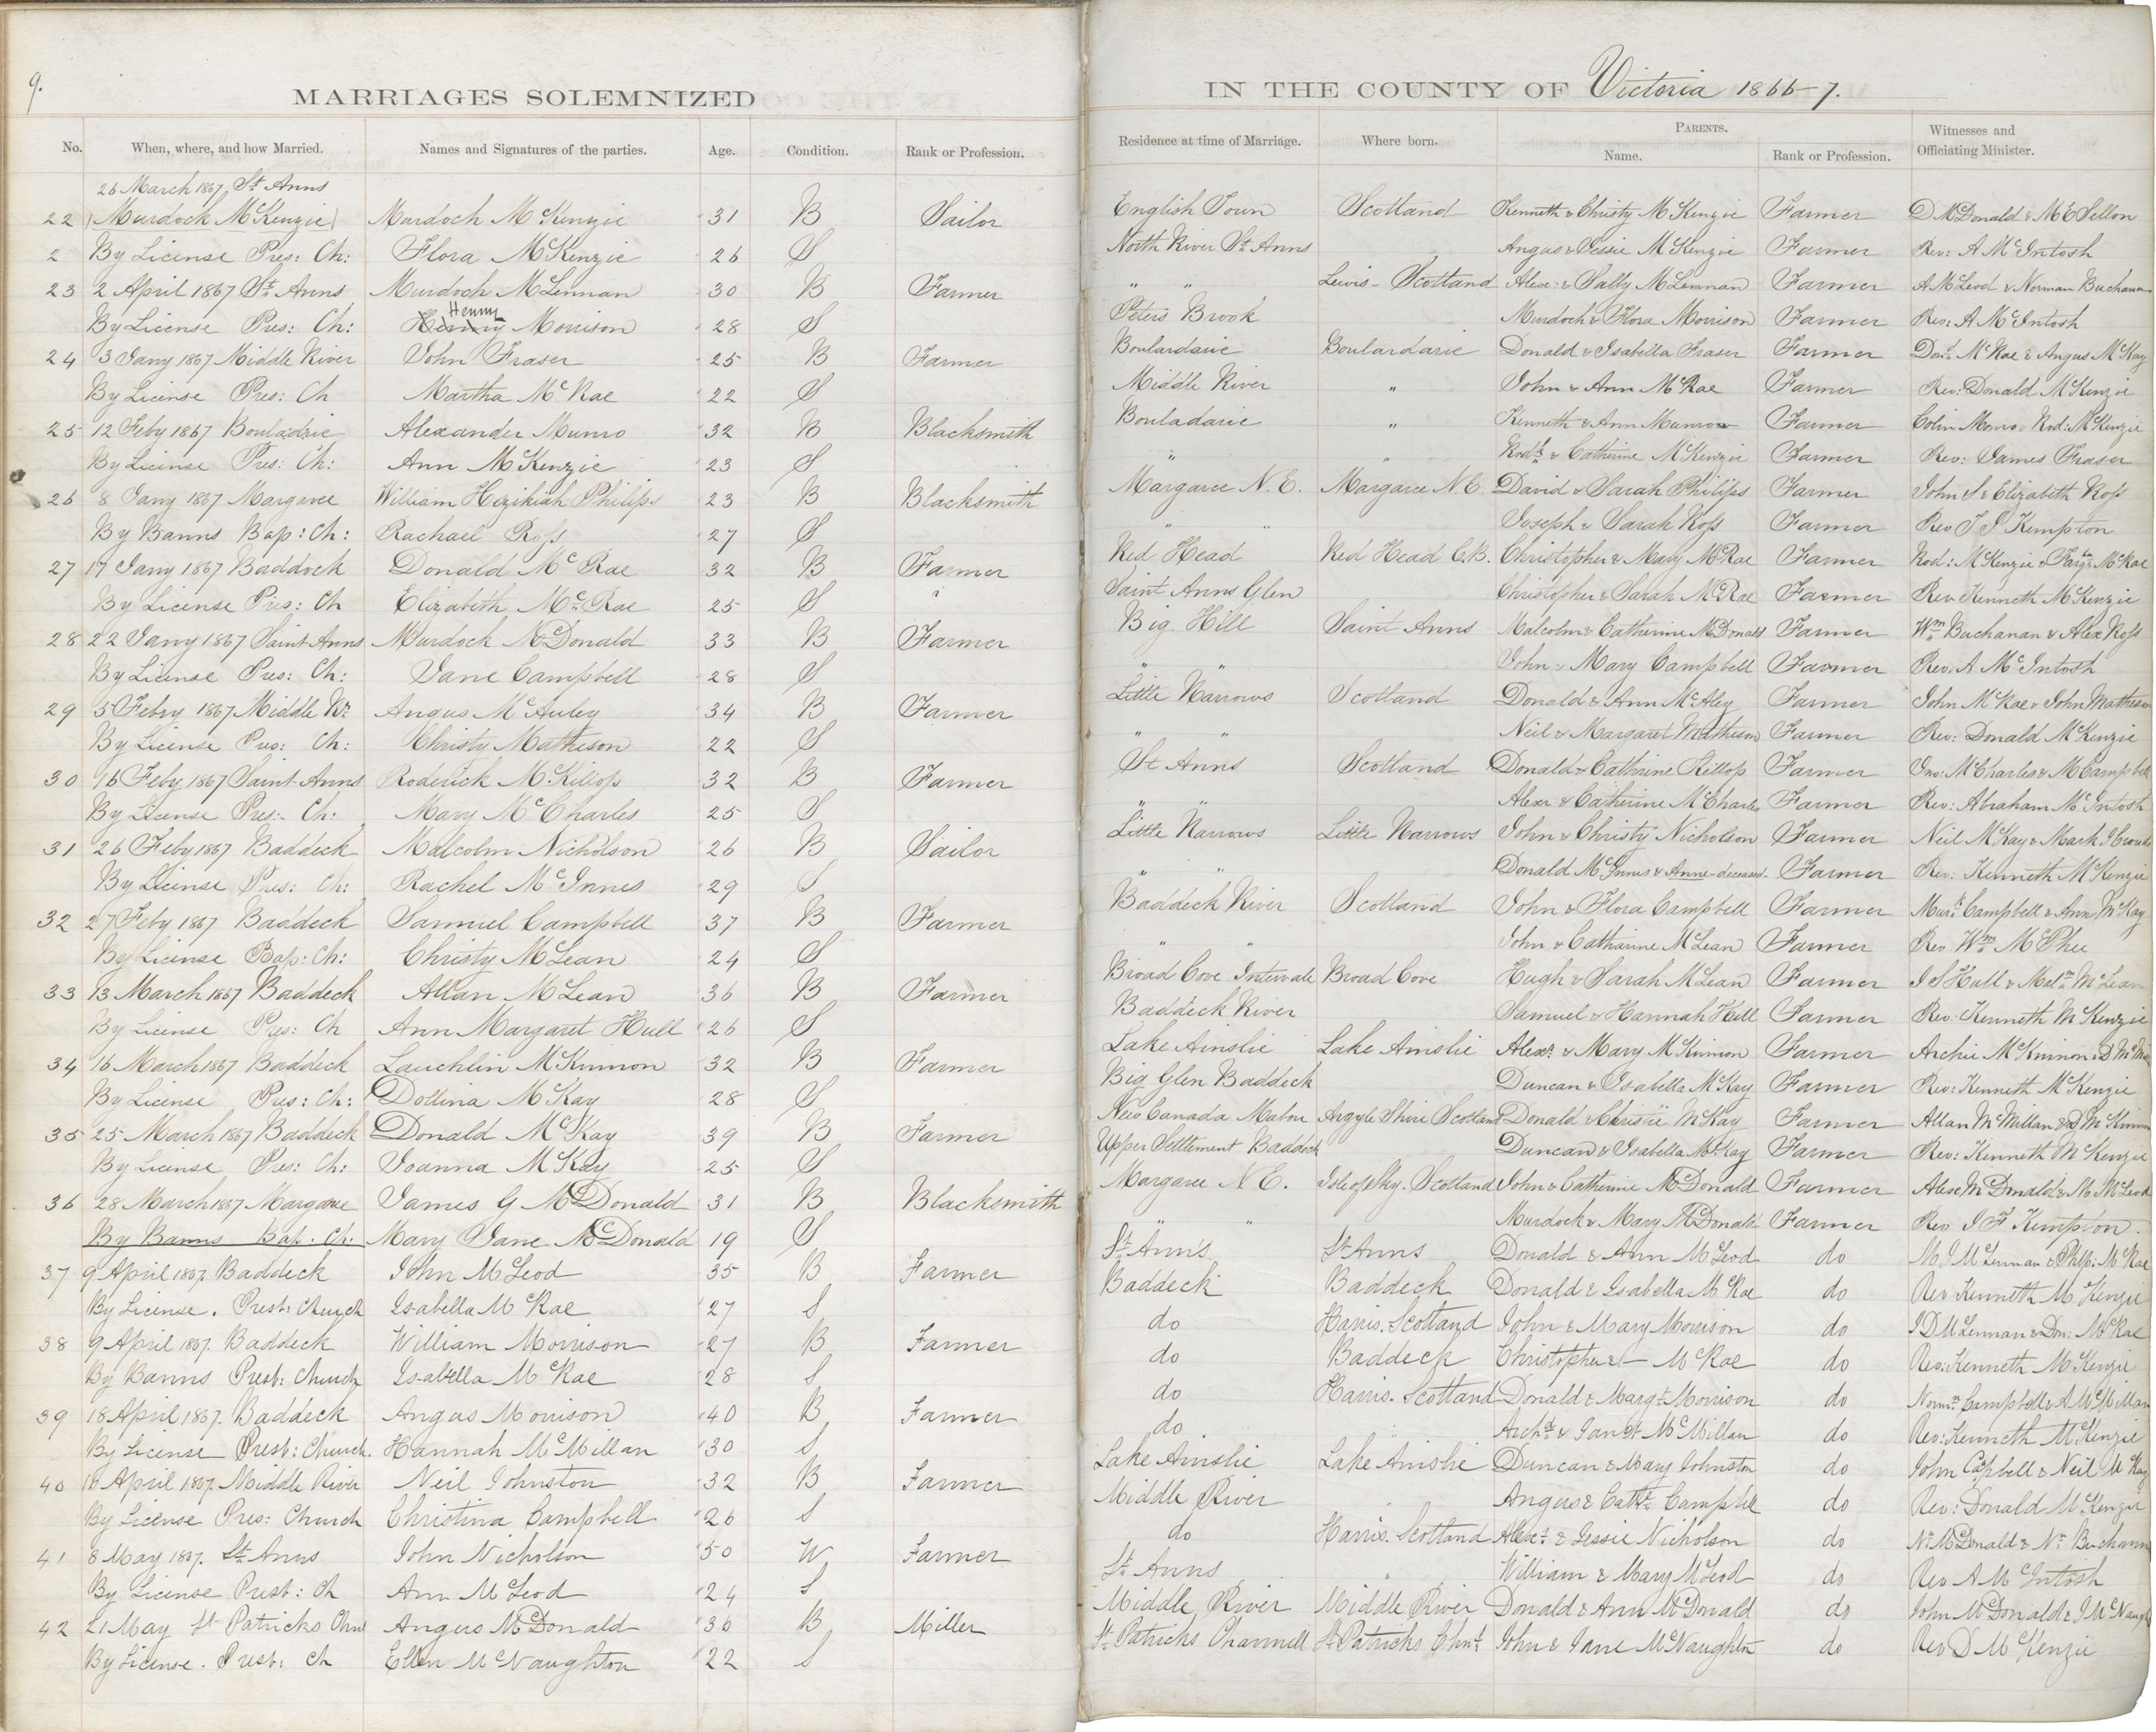 9.
MARRIAGES SOLEMNIZED IN THE COUNTY OF Victoria 1866-7.
No. When, where, and how Married. Names and Signatures of the parties. Age. Condition. Rank or Profession. Residence at time of Marriage. Where born. PARENTS. Name. Rank or Profession. Witnesses and Officiating Minister.
26 March 1867, St Anns
22 (Murdoch McKenzie) Murdoch McKenzie 31 B Sailor English Town Scotland Kenneth & Christy McKenzie Farmer D McDonald &
2 By License Pres: Ch: Flora McKenzie 26 S North River St Anns Angus & Jessie McKenzie Farmer Rev: A McIntosh
23 2 April 1867 St Anns Murdoch McLennan 30 B Farmer " " Lewis - Scotland Alex: & Sally McLennan Farmer A McLeod & Norman Buchanan
Henny
By License Pres: Ch: Morrison 28 S Peters Brook Murdoch & Flora Morrison Farmer Rev: A McIntosh
24 3 Jany 1867 Middle River John Fraser 25 B Farmer Boulardarie Boulardarie Donald & Isabella Fraser Farmer Dond McRae & Angus McKay
By License Pres: Ch Martha McRae 22 S Middle River " John & Ann McRae Farmer Rev: Donald McKenzie
25 12 Feby 1867 Bouladrie Alexander Munro 32 B Blacksmith Bouladarie " Kenneth & Ann Munro Farmer Colin Monro Rod: McKenzie
By License Pres: Ch: Ann McKenzie 23 S " " Rodk & Catherine McKenzie Farmer Rev: James Fraser
26 8 Jany 1867 Margaree William Hezikiah Philips 23 B Blacksmith Margaree N.E. Margaree N.E. David & Sarah Philips Farmer John S & Elizabeth Ross
By Banns Bap: Ch: Rachael Ross 27 S " " Joseph & Sarah Ross Farmer Rev Kempton
27 17 Jany 1867 Baddeck Donald McRae 32 B Farmer Red Head Red Head C.B. Christopher & Mary McRae Farmer Rod: McKenzie & Farqr McRae
By License Pres: Ch Elizabeth McRae 25 S " Saint Anns Glen Christopher & Sarah McRae Farmer Rev Kenneth McKenzie
28 22 Jany 1867 Saint Anns Murdock McDonald 33 B Farmer Big Hill Saint Anns Malcolm & Catherine McDonald Farmer Wm Buchanan & Alex Ross
By License Pres: Ch: Jane Campbell 28 S " " John & Mary Campbell Farmer Rev: A McIntosh
29 5 Febry 1867 Middle Rr Angus McAuley 34 B Farmer Little Narrows Scotland Donald & Ann McAley Farmer John McRae & John Matheson
By License Pres: Ch: Christy Matheson 22 S " " Neil & Margaret Matheson Farmer Rev: Donald McKenzie
30 16 Feby 1867 Saint Anns Roderick McKillop 32 B Farmer St Anns Scotland Donald & Cathrine Killop Farmer Jno: McCharles & M Campbell
By License Pres:- Ch: Mary McCharles 25 S " " Alexr & Catherine McCharles Farmer Rev: Abraham McIntosh
31 26 Feby 1867 Baddeck Malcolm Nicholson 26 B Sailor Little Narrows Little Narrows John & Christy Nicholson Farmer Neil McKay & Mark
By License Pres: Ch: Rachel McInnes 29 S " " Donald McInnes & Anne - deceased - Farmer Rev: Kenneth McKenzie
32 27 Feby 1867 Baddeck Samuel Campbell 37 B Farmer Baddeck River Scotland John & Flora Campbell Farmer Murd Campbell & Ann McKay
By License Bap: Ch: Christy McLean 24 S " " John & Catharine McLean Farmer Rev Wm McPhee
33 13 March 1867 Baddeck Allan McLean 36 B Farmer Broad Cove Intervale Broad Cove Hugh & Sarah McLean Farmer J S Hull & Malm McLean
By License Pres: Ch Ann Margaret Hull 26 S Baddeck River Samuel & Hannah Hull Farmer Rev. Kenneth McKenzie
34 16 March 1867 Baddeck Lauchlin McKinnon 32 B Farmer Lake Ainslie Lake Ainslie Alexr & Mary McKinnon Farmer Archie McKinnon &
By License Pres: Ch: Dollina McKay 28 S Big Glen Baddeck Duncan & Isabella McKay Farmer Rev: Kenneth McKenzie
35 25 March 1867 Baddeck Donald McKay 39 B Farmer New Canada Mabou Argyle Shire Scotland Donald & Christie McKay Farmer Allan McMillan & D McKinnon
By License Pres: Ch: Joanna McKay 25 S Upper Settlement Baddeck Duncan & Isabella McKay Farmer Rev: Kenneth McKenzie
36 28 March 1867 Margaree James G McDonald 31 B Blacksmith Margaree N E. Isle of Sky. Scotland John & Catherine McDonald Farmer Alex McDonald & M McLeod
By Banns Bap. Ch: Mary Jane McDonald 19 S " " Murdock & Mary McDonald Farmer Rev J F Kempton.
37 9 April 1867. Baddeck John McLeod 35 B Farmer St Ann's St Anns Donald & Ann McLeod do M J McLennan & Philp: McRae
By License. Presb: Church Isabella McRae 27 S Baddeck Baddeck Donald & Isabella McRae do Rev Kenneth McKenzie
38 9 April 1867. Baddeck William Morrison 27 B Farmer do Harris. Scotland John & Mary Morrison do J D McLennan & Don: McRae
By Banns Presb: Church Isabella McRae 28 S do Baddeck Christopher & — McRae do Rev: Kenneth McKenzie
39 18 April 1867. Baddeck Angus Morrison 40 B Farmer do Harris. Scotland Donald & Margt Morrison do Normn Campbell & A McMillan
By License Presb: Church. Hannah McMillan 30 S do " Archd & Janet McMillan do Rev: Kenneth McKenzie
40 16 April 1867. Middle River Neil Johnston 32 B Farmer Lake Ainslie Lake Ainslie Duncan & Mary Johnston do John Capbell & Neil McKay
By License Pres: Church Christina Campbell 26 S Middle River " Angus & Cathe Campbell do Rev: Donald McKenzie
41 8 May 1867. St Anns John Nicholson 50 W Farmer do Harris. Scotland Alexr & Jessie Nicholson do Nr McDonald & Nr Buchanan
By License Presb: Ch Ann McLeod 24 S St Anns " William & Mary McLeod do Rev A McIntosh
42 21 May St Patricks Chnl Angus McDonald 30 B Miller Middle River Middle River Donald & Ann McDonald do John McDonald & J McNaughton
By License. Presb: Ch Ellen McNaughton 22 S St Patricks Channell St Patricks Chnl John & Jane McNaughton do Rev D McKenzie